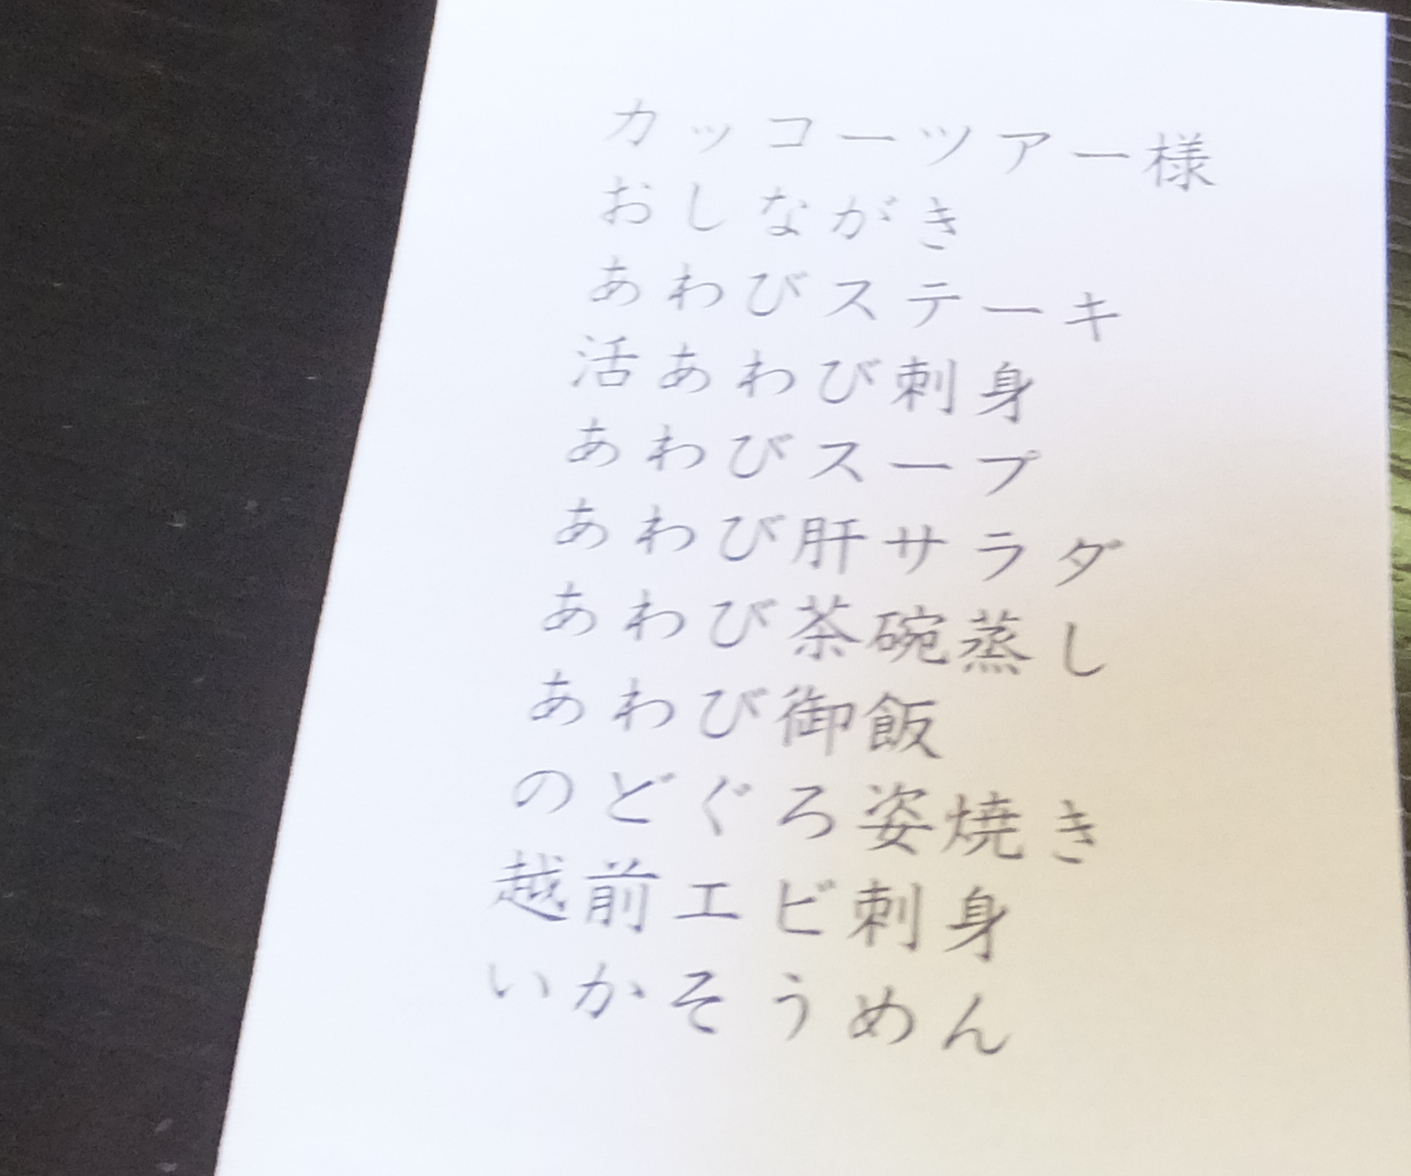 カッコーツアー様
おしながき
あわびステーキ
活あわび刺身
あわびスープ
あわび肝サラダ
あわび茶碗蒸し
あわび御飯
のどぐろ姿焼き
越前エビ刺身
いかそうめん